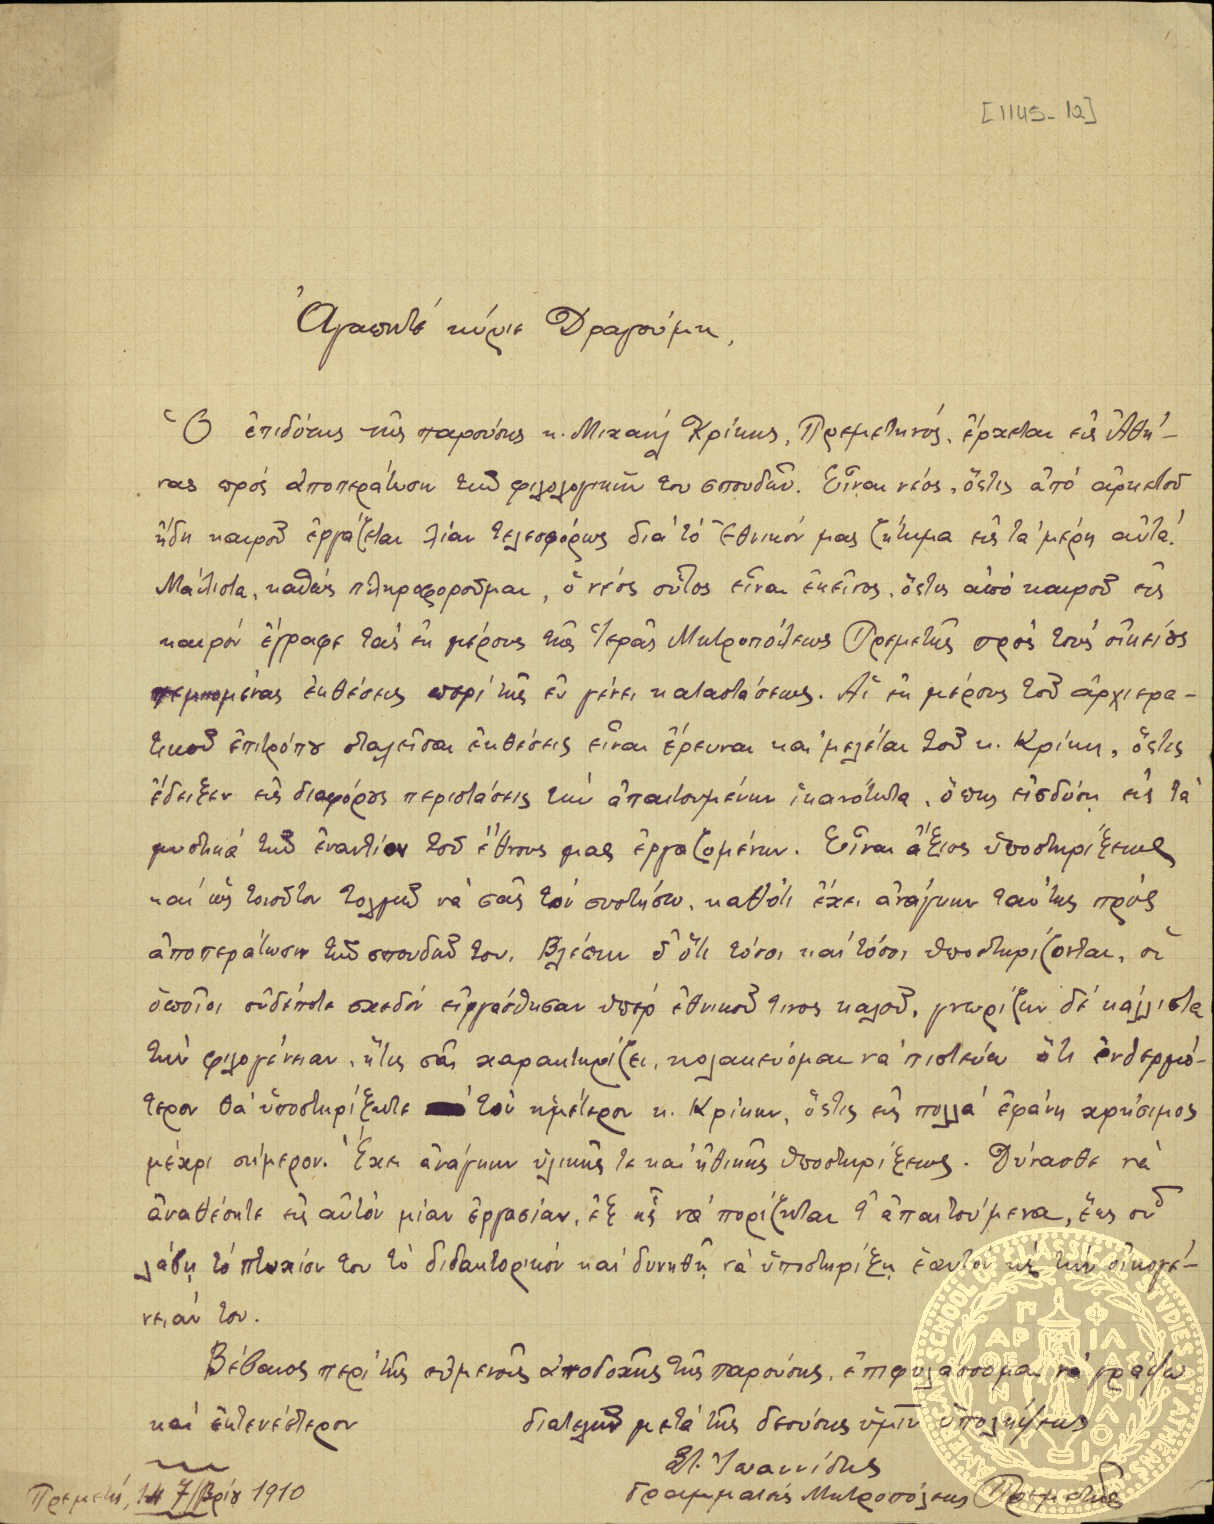 [1145-12]
Ἀγαπητέ κύριε Δραγούμη,
Ὁ ἐπιδότης τῆς παρούσης κ. Μιχαήλ Κρίκης, Πρεμετηνός, ἔρχεται εἰς Ἀθή-
νας πρός ἀποπεράτωσιν τῶν φιλολογικῶν του σπουδῶν. Εἶναι νέος, ὅστις ἀπό ἀρκετοῦ
ἤδη καιροῦ ἐργάζεται λίαν τελεσφόρως διά τό Ἐθνικόν μας ζήτημα εἰς τά μέρη αὐτά.
Μάλιστα, καθώς πληροφοροῦμαι, ὁ νέος οὗτος εἶναι ἐκεῖνος, ὅστις ἀπό καιροῦ εἰς
καιρόν ἔγραφε τάς ἐκ μέρους τῆς Ἱερᾶς Μητροπόλεως Πρεμετῆς πρός τούς οἰκείους
πεμπομένας ἐκθέσεις περί τῆς ἐν γένει καταστάσεως. Αἱ ἐκ μέρους τοῦ ἀρχιερα-
τικοῦ ἐπιτρόπου σταλεῖσαι ἐκθέσεις εἶναι ἔρευναι καί μελέται τοῦ κ. Κρίκη, ὅστις
ἔδειξεν εἰς διαφόρους περιστάσεις τήν ἀπαιτουμένην ἱκανότητα, ὅπως εἰσδύση εἰς τά
μυστικά τῶν ἐναντίον τοῦ ἔθνους μας ἐργαζομένων. Εἶναι ἄξιος ὑποστηρίξεως
καί ὡς τοιοῦτον τολμῶ νά σᾶς τόν συστήσω, καθότι ἔχει ἀνάγκην ταύτης πρός
ἀποπεράτωσιν τῶν σπουδῶν του. Βλέπων δ' ὅτι τόσοι καί τόσοι ὑποστηρίζονται, οἱ
ὁποῖοι οὐδέποτε σχεδόν εἰργάσθησαν ὑπέρ ἐθνικοῦ τινος καλοῦ, γνωρίζων δέ κάλλιστα
τήν φιλογένειαν, ἥτις σᾶς χαρακτηρίζει, κολακεύομαι νά πιστεύω ὅτι ἐνθερμό-
τερον θά ὑποστηρίξητε τόν ἡμέτερον κ. Κρίκην, ὅστις εἰς πολλά ἐφάνη χρήσιμος
μέχρι σήμερον. Ἔχει ἀνάγκην ὑλικῆς τε καί ἠθικῆς ὑποστηρίξεως. Δύνασθε νά
ἀναθέσητε εἰς αὐτόν μίαν ἐργασίαν, ἐξ ἧς νά πορίζηται τ' ἀπαιτούμενα, ἕως οὗ
λάβῃ τό πτυχίον του τό διδακτορικόν καί δυνηθῇ νά ὑποστηρίξῃ ἑαυτόν κ' τήν οἰκογέ-
νειάν του.
Βέβαιος περί τῆς εὐμενοῦς ἀποδοχῆς τῆς παρούσης, ἐπιφυλάσσομαι νά γράψω
καί ἐκτενέστερον διατελῶν μετά τῆς δεούσης ὑμῖν ὑπολήψεως
Στ. Ἰωαννίδης
Γραμματεύς Μητροπόλεως Πρεμετῆς
Πρεμετή, 7/βρίου 1910
AMERICAN SCHOOL OF CLASSICAL STUDIES AT ATHENS